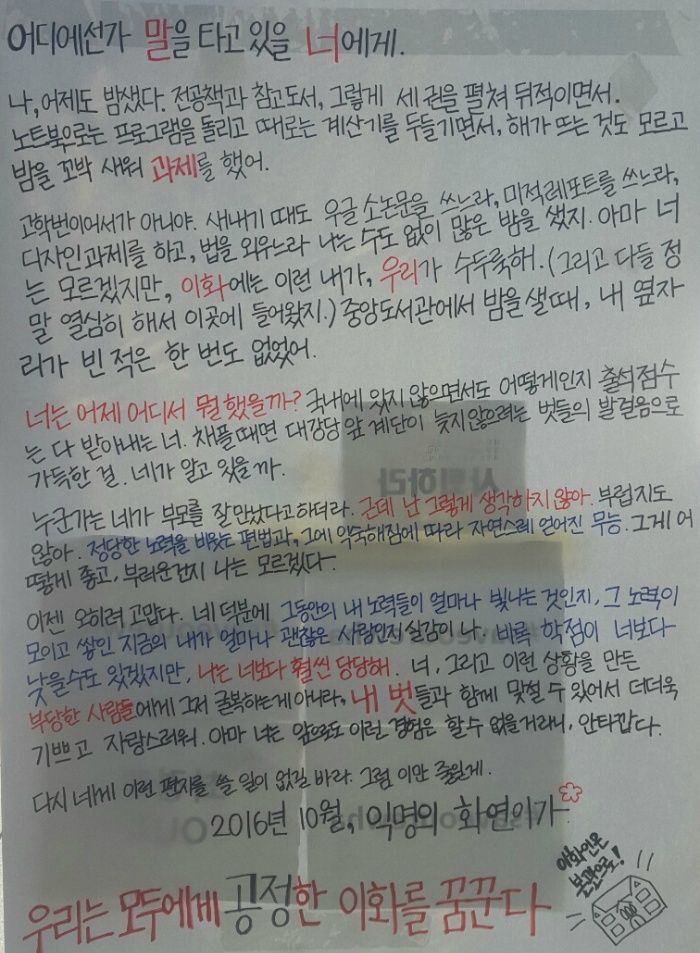 어디에선가 말을 타고 있을 너에게.
나, 어제도 밤샜다. 전공책과 참고도서, 그렇게 세 권을 펼쳐 뒤적이면서.
노트북으로는 프로그램을 돌리고 때로는 계산기를 두들기면서, 해가 뜨는 것도 모르고
밤을 꼬박 새워 과제를 했어.
고학번이어서가 아니야. 새내기 때도 우글 소논문을 쓰느라, 미적 레포트를 쓰느라,
디자인 과제를 하고, 법을 외우느라 나는 수도 없이 많은 밤을 샜지. 아마 너
는 모르겠지만, 이화에는 이런 내가, 우리가 수두룩해. (그리고 다들 정
말 열심히 해서 이곳에 들어왔지.) 중앙도서관에서 밤을 샐 때, 내 옆자
리가 빈 적은 한 번도 없었어.
너는 어제 어디서 뭘 했을까? 국내에 있지 않으면서도 어떻게인지 출석점수
는 다 받아내는 너. 채플 때면 대강당 앞 계단이 늦지 않으려는 벗들의 발걸음으로
가득한 걸. 네가 알고 있을까.
누군가는 네가 부모를 잘 만났다고 하더라. 근데 난 그렇게 생각하지 않아. 부럽지도
않아. 정당한 노력을 비웃는 편법과, 그에 익숙해짐에 따라 자연스레 얻어진 무능. 그게 어
떻게 좋고, 부러운건지 나는 모르겠다.
이젠 오히려 고맙다. 네 덕분에 그동안의 내 노력들이 얼마나 빛나는 것인지, 그 노력이
모이고 쌓인 지금의 내가 얼마나 괜찮은 사람인지 실감이 나. 비록 학점이 너보다
낮을 수도 있겠지만, 나는 너보다 훨씬 당당해. 너, 그리고 이런 상황을 만든
부당한 사람들에게 그저 굴복하는게 아니라, 내 벗들과 함께 맞설 수 있어서 더더욱
기쁘고 자랑스러워. 아마 너는 앞으로도 이런 경험은 할 수 없을 거라니, 안타깝다.
다시 네게 이런 편지를 쓸 일이 없길 바라. 그럼 이만 줄일게.
2016년 10월, 익명의 화연이가
이화인은
본관으로!
우리는 모두에게 공정한 이화를 꿈꾼다